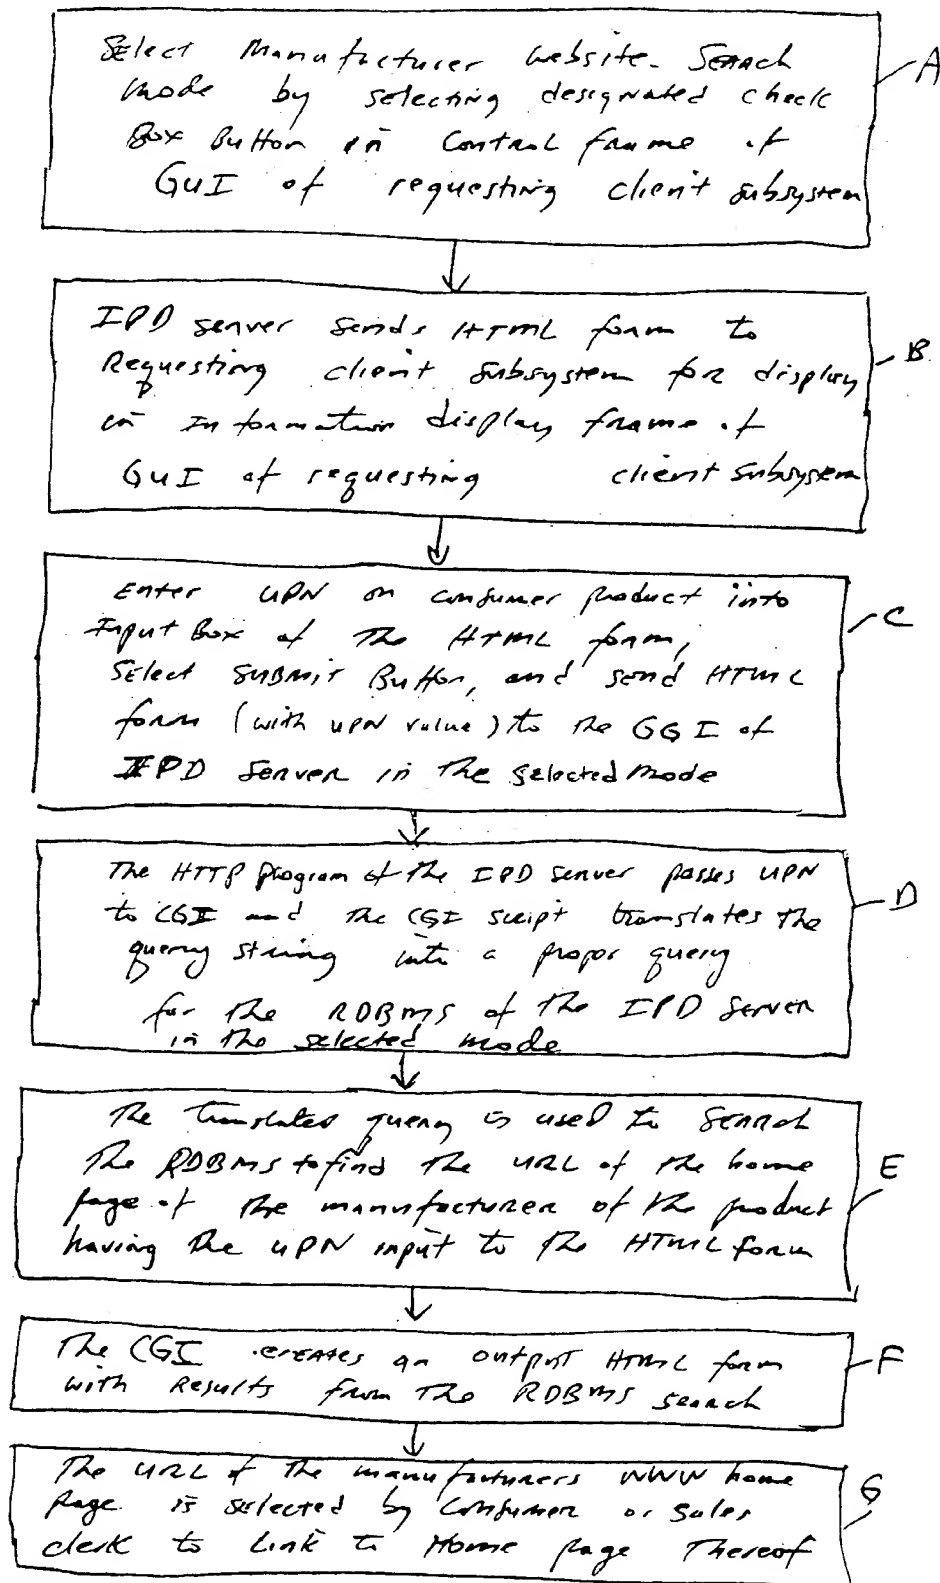 Select Manufacturer website Search
mode by selecting designated check
Box Button in Control frame of
GUI of requesting client subsystem
A
IPD server sends HTML form to
Requesting client subsystem for display
in Information display frame of
GUI of requesting client subsystem
B
Enter UPN on consumer product into
Input Box of the HTML form,
Select SUBMIT Button, and send HTML
form (with UPN value) to the GGI of
IPD Server in the selected mode
C
The HTTP program of the IPD server passes UPN
to CGI and the CGI script translates the
query string into a propor query
for the RDBMS of the IPD Server
in the selected mode
D
The translated query is used to Search
the RDBMS to find the URL of the home
page of the manufacturer of the product
having the UPN input to the HTML form
E
The CGI creates an output HTML form
with Results from the RDBMS search
F
The URL of the manufacturers WWW home
Page is selected by Consumer or Sales
clerk to Link to Home page Thereof
G